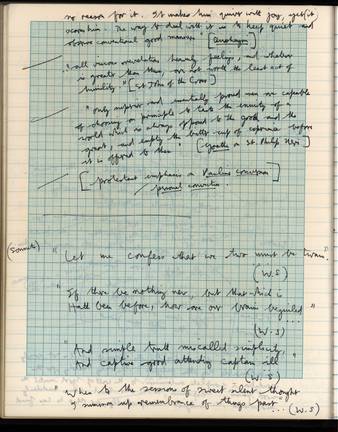 no reason for it. It makes him quiver with joy, yet
him. The way to deal with it is to keep quiet and
observe conventional good manners." [
"all visions revelations heavenly feelings, and whatever
is greater than these, are not worth the least act of
humility" [St John of the Cross]
"only superior and mentally proud men are capable
of choosing on principle to taste the enmity of a
world which is always opposed to the good and the
great, and empty the bitter cup of experience before
it is offered to them" [Goethe on St. Philip Neri]
[protestant emphasis on Pauline conversion
personal conviction.]
(Sonnets) "Let me confess that we two must be twain."
(W.S)
"If there be nothing new, but that which is
Hath been before, how are our brains beguiled"
(W.S)
"And simple truth miscalled simplicity,
And captive good attending captain ill"
(W.S)
"When to the sessions of sweet silent thought
I summon up remembrance of things past" ... (W.S)